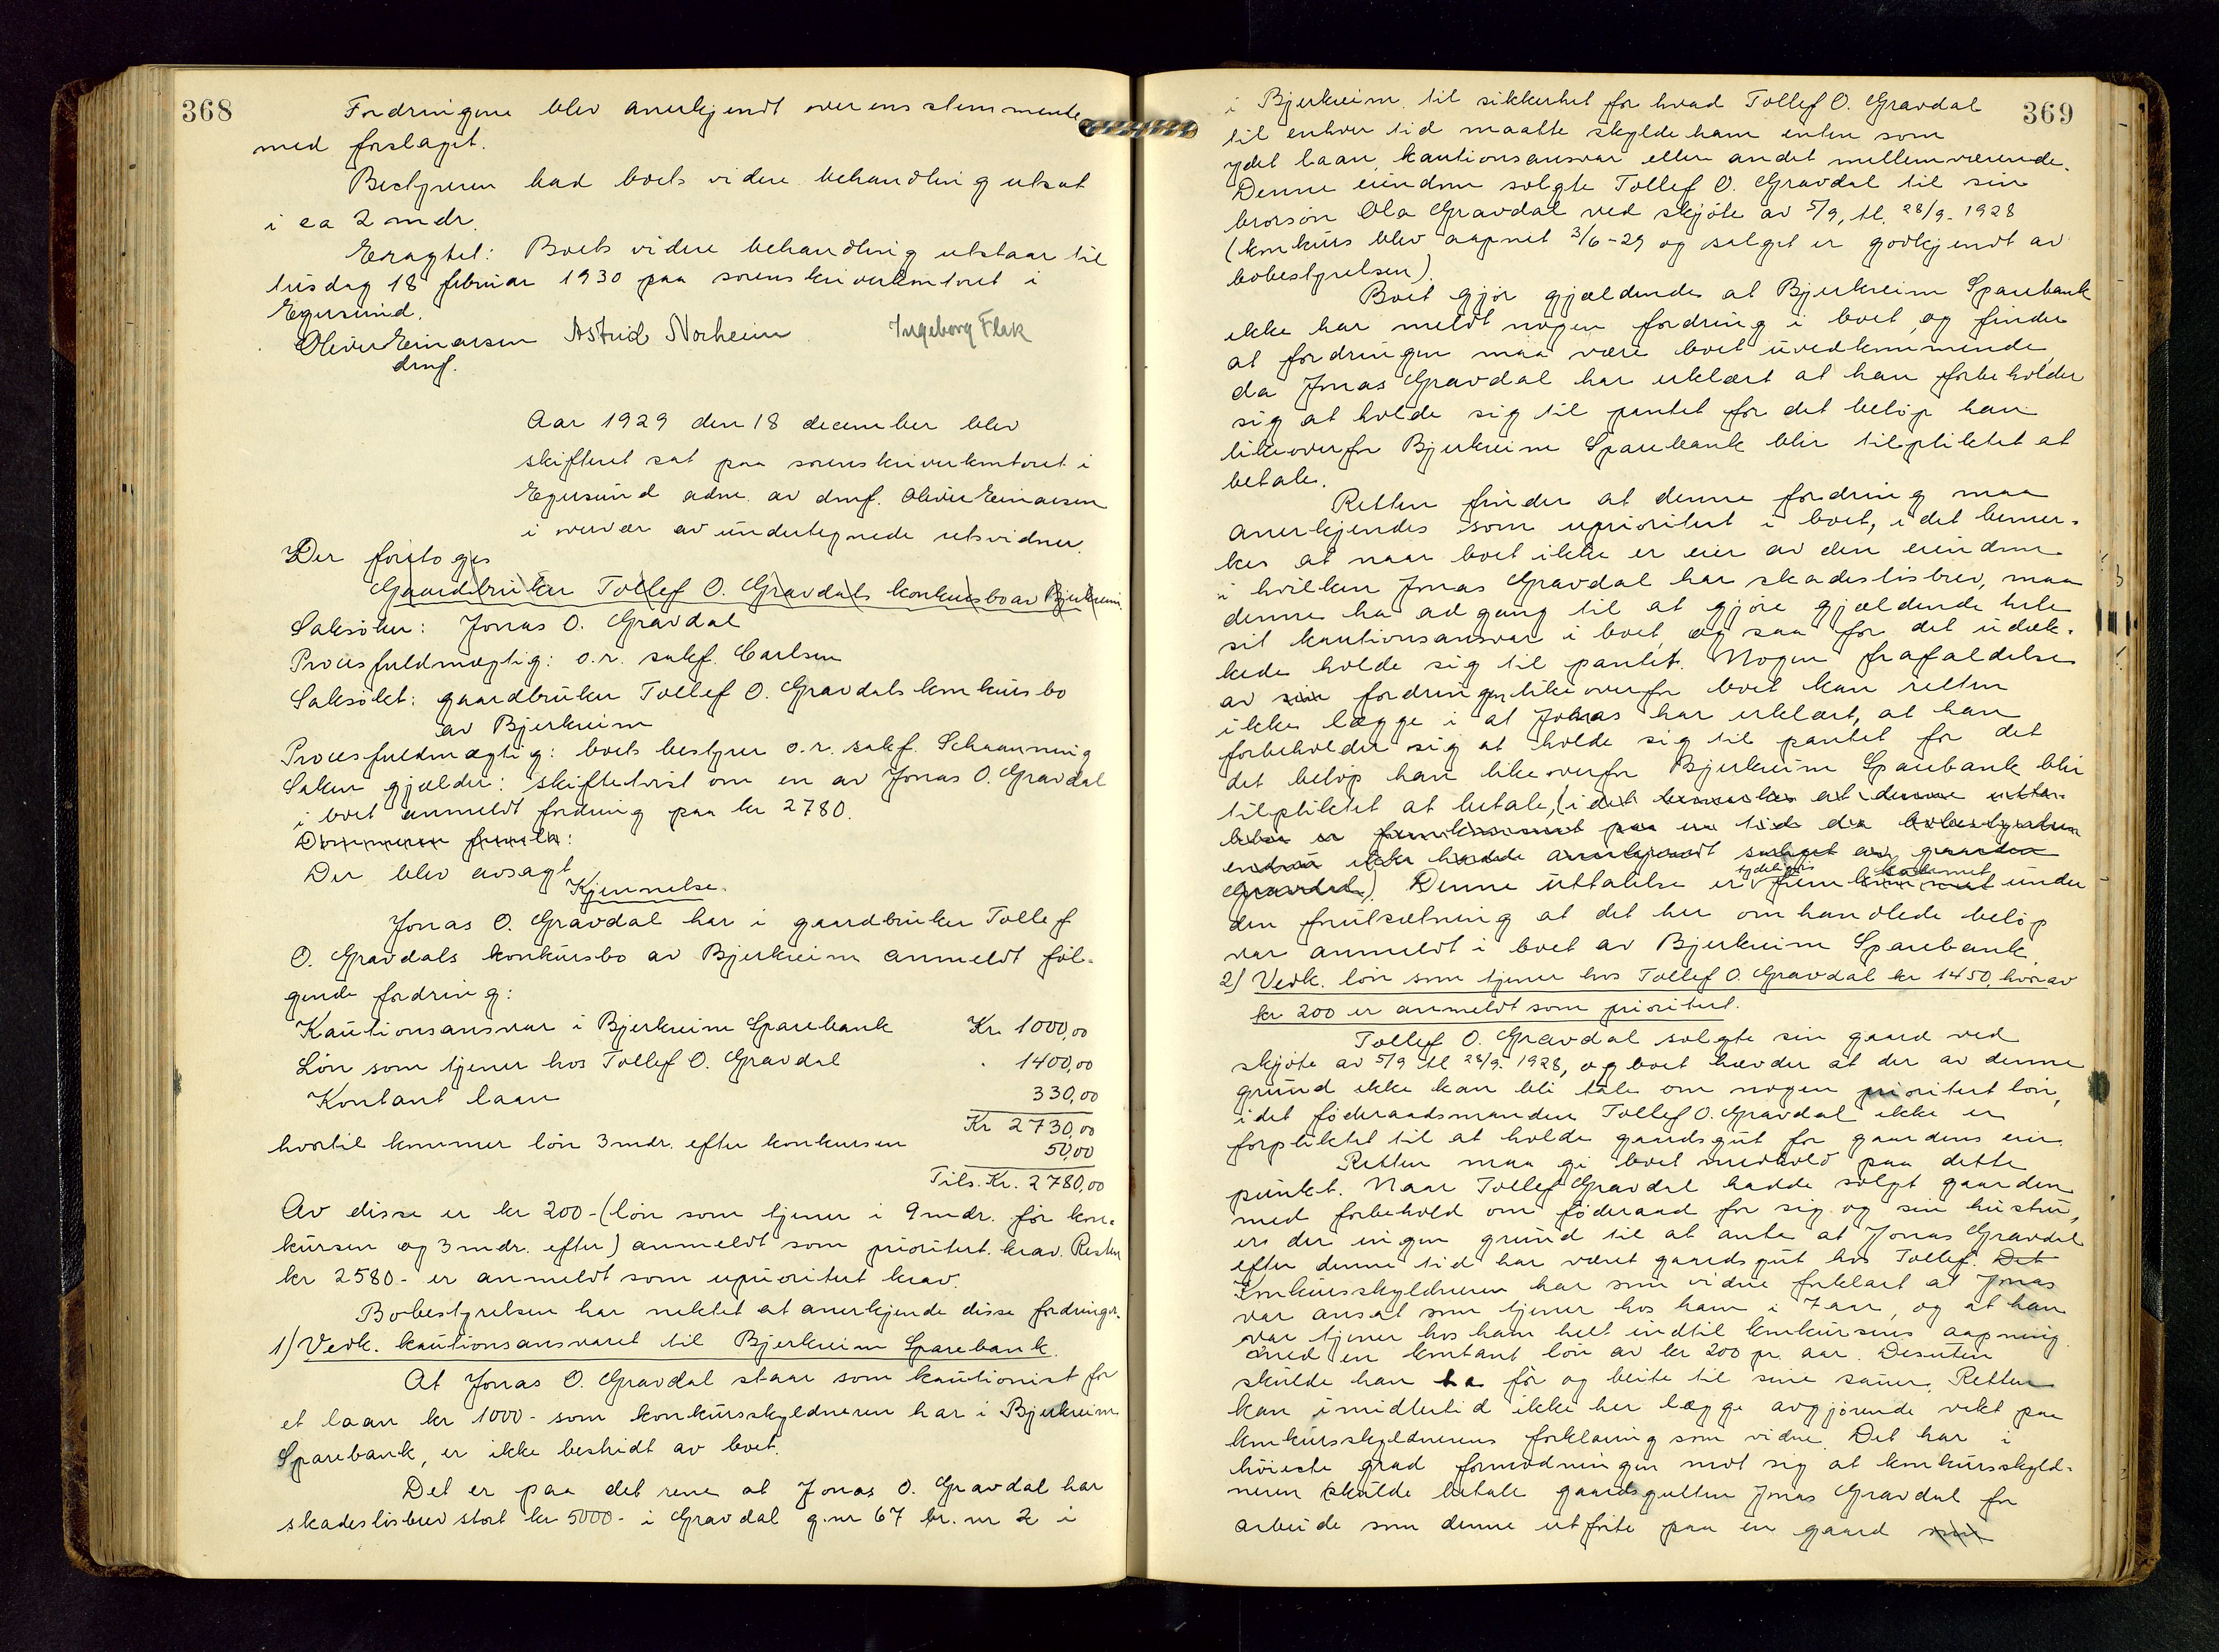 368
Fordringene blev anerkjendt overensstemmende
med forslaget.
Bestyreren bad boets videre behandling utsat
i ca 2 mdr.
Eragtet: Boets videre behandling utstaar til
tirsdag 18 februar 1930 paa sorenskriverkontoret i
Egersund.
Oliver Einarsen Astrid Norheim Ingeborg Flak
dmf.
Aar 1929 den 18 december blev
skifteret sat paa sorenskriverkontoret i
Egersund adm. av dmf. Oliver Einarsen
i overvær av undertegnede retsvidner.
Der foretoges
Gaardbruker Tollef O. Gravdals konkursbo av Bjerkreim
Saksøker: Jonas O. Gravdal
Procesfuldmægtig: o.r. sakf. Carlsen
Saksøkt: gaardbruker Tollef O. Gravdals konkursbo
av Bjerkreim
Procesfuldmægtig: boets bestyrer o.r. sakf. Schaanning
Saken gjælder: skiftetvist om en av Jonas O. Gravdal
i boet anmeldt fordring paa kr 2780.
Dommeren fremla:
Der blev avsagt
Kjennelse.
Jonas O. Gravdal har i gaardbruker Tollef
O. Gravdals konkursbo av Bjerkreim anmeldt føl-
gende fordring:
Kautionsansvar i Bjerkreim Sparebank Kr. 1000,00
Løn som tjener hos Tollef O. Gravdal " 1400,00
Kontant laan 330,00
Kr 2730,00
hvortil kommer løn 3 mdr. efter konkursen 50,00
Tils. Kr. 2780,00
Av disse er kr 200- (løn som tjener i 9 mdr. før kon-
kursen og 3 mdr. efter) anmeldt som prioritert krav. Resten
kr 2580- er anmeldt som uprioritert krav.
Bobestyrelsen har nektet at anerkjende disse fordringer.
1) Vedk. kautionsansvaret til Bjerkreim Sparebank.
At Jonas O. Gravdal staar som kautionist for
et laan kr 1000- som konkursskyldneren har i Bjerkreim
Sparebank, er ikke bestridt av boet.
Det er paa det rene at Jonas O. Gravdal har
skadesløsbrev stort kr 5000- i Gravdal g.nr 67 br. nr 2 i
369
i Bjerkreim til sikkerhet for hvad Tollef O. Gravdal
til enhver tid maatte skylde ham enten som
ydet laan, kautionsansvar eller andet mellemværende.
Denne eiendom solgte Tollef O. Gravdal til sin
brorsøn Ola Gravdal ved skjøte av 5/9, tl. 28/9-1928
(konkurs blev aapnet 3/6-29 og salget er godkjendt av
bobestyrelsen).
Boet gjør gjældende at Bjerkreim Sparebank
ikke har meldt nogen fordring i boet, og finder
at fordringen maa være boet uvedkommende,
da Jonas Gravdal har erklært at han forbeholder
sig at holde sig til pantet for det beløp han
likeoverfor Bjerkreim Sparebank blir tilpliktet at
betale.
Retten finder at denne fordring maa
anerkjendes som uprioritert i boet, idet bemer-
kes at naar boet ikke er eier av den eiendom
i hvilken Jonas Gravdal har skadesløsbrev, maa
denne ha adgang til at gjøre gjældende hele
sit kautionsansvar i boet, og saa for det udæk-
kede holde sig til pantet. Nogen frafaldelse
av sin fordringen likeoverfor boet kan retten
ikke lægge i at Jonas har erklært, at han
forbeholder sig at holde sig til pantet for det
det beløp han likeoverfor Bjerkreim Sparebank blir
tilpliktet at betale, (idet bemerkes at denne utta-
lelse er fremkommet paa en tid da bobestyrelsen
endnu ikke hadde anerkjendt salget av gaarden
Gravdal). Denne uttalelse er tydeligvis fremkommet under
den forutsætning at det her omhandlede beløp
var anmeldt i boet av Bjerkreim Sparebank.
2) Vedk. løn som tjener hos Tollef O. Gravdal kr 1450, hvorav
kr 200 er anmeldt som prioritert.
Tollef O. Gravdal solgte sin gaard ved
skjøte av 5/9 tl 28/9-1928, og boet hævder at der av denne
grund ikke kan bli tale om nogen prioritert løn,
idet føderaadsmanden Tollef O. Gravdal ikke er
forpliktet til at holde gaardsgut for gaardens eier.
Retten maa gi boet medhold paa dette
punkt. Naar Tollef Gravdal hadde solgt gaarden
med forbehold om føderaad for sig og sin hustru,
er der ingen grund til at anta at Jonas Gravdal
efter denne tid har været gaardsgut hos Tollef. Det
Konkursskyldneren har som vidne forklart at Jonas
var ansat som tjener hos ham i 7 aar, og at han
var tjener hos ham helt indtil konkursens aapning
med en kontant løn av kr 200 pr. aar. Desuten
skulde han ha fôr og beite til sine sauer. Retten
kan imidlertid ikke her lægge avgjørende vekt paa
konkursskyldnerens forklaring som vidne. Det har i
høieste grad formodningen mot sig at konkursskyld-
neren skulde betale gaardsgutten Jonas Gravdal for
arbeide som denne utførte paa en gaard